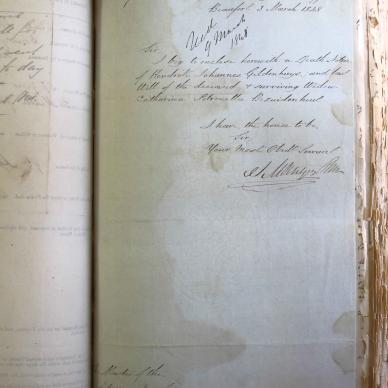 Beaufort 3 March 1848
Recd
9 March
1848
Sir
I beg to enclose herewith a Death Notice
of Hendrik Johannes Geldenhuys, and the
Will of the deceased & surviving Widow
Catharina Petronella Bezuidenhout
I have the honor to be
Sir
Your Most Obdt Servant
to day
Master of the